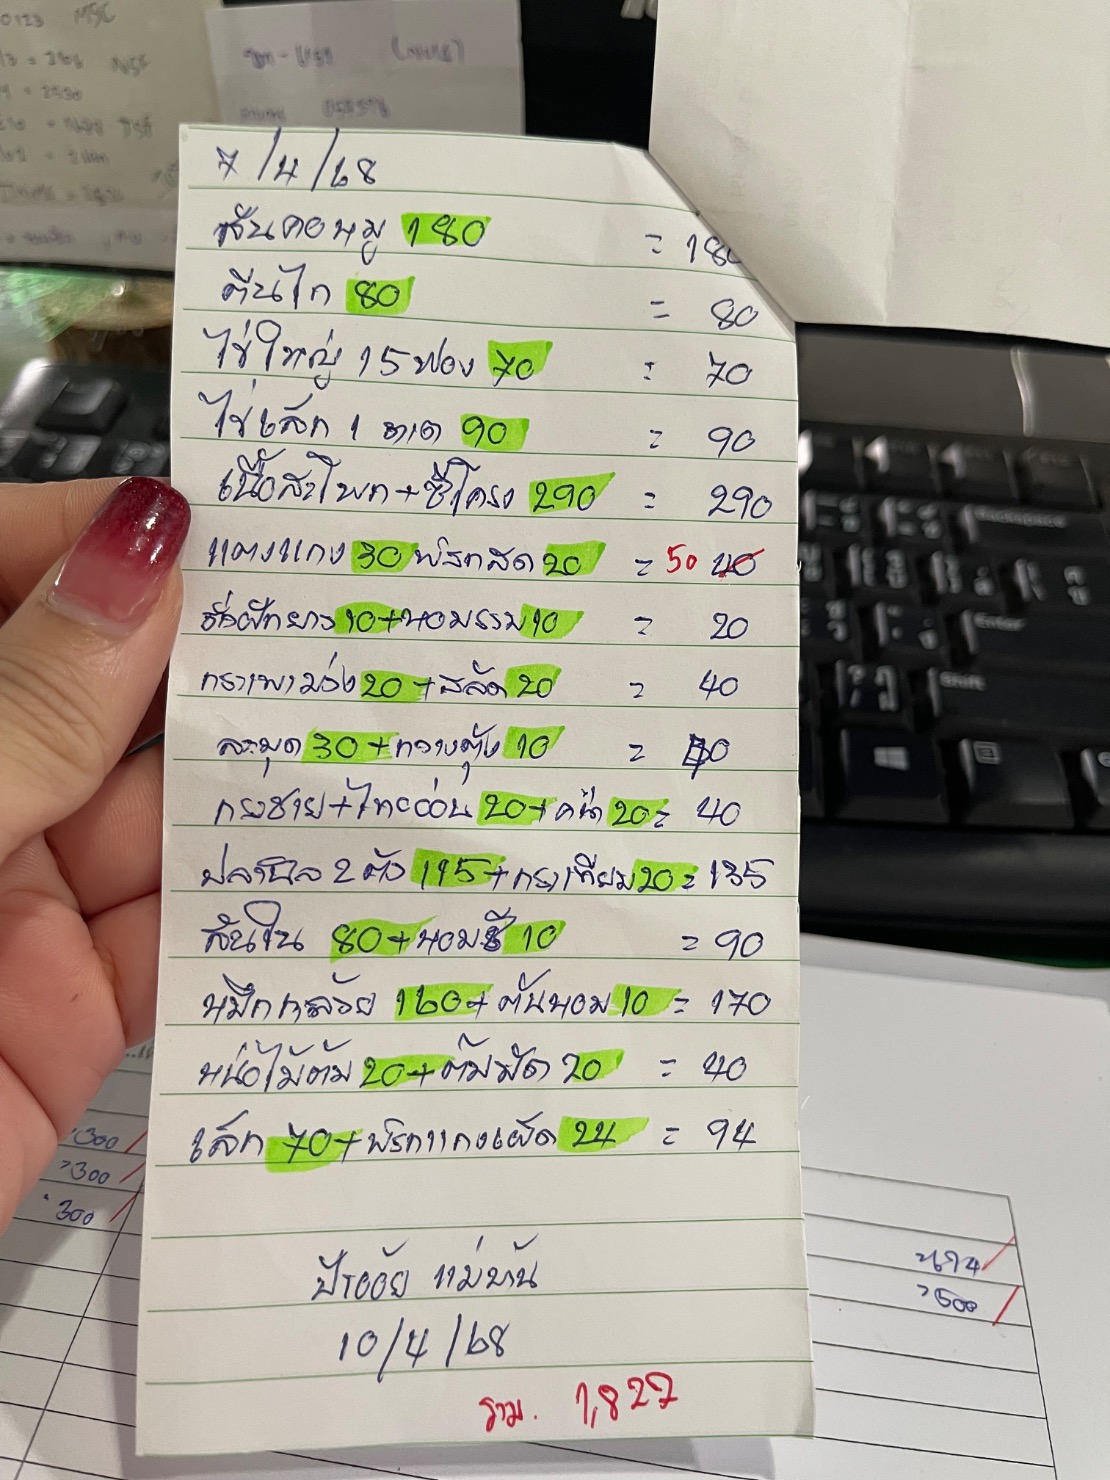 7/4/68
สันคอหมู 180 = 180
ตีนไก่ 80 = 80
ไข่ใหญ่ 15 ฟอง 70 = 70
ไข่เล็ก 1 ถาด 90 = 90
เนื้อสะโพก+ซี่โครง 290 = 290
แตงแกง 30 พริกสด 20 = 50 40
ถั่วฝักยาว 10+หอมรวม 10 = 20
กระเพาม่วง 20+สลัด 20 = 40
ละมุด 30+กวางตุ้ง 10 = 40
กระชาย+ไทยอ่อน 20+คะน้า 20 = 40
ปลานิล 2 ตัว 115+กระเทียม 20 = 135
สันใน 80+หอมชี 10 = 90
หมึกกล้วย 160+ต้นหอม 10 = 170
หน่อไม้ต้ม 20+ต้มผัด 20 = 40
เล็ก 70+พริกแกงเผ็ด 24 = 94
ป้าอ้อย แม่บ้าน
10/4/68
รวม. 1,827
300
300
300
500